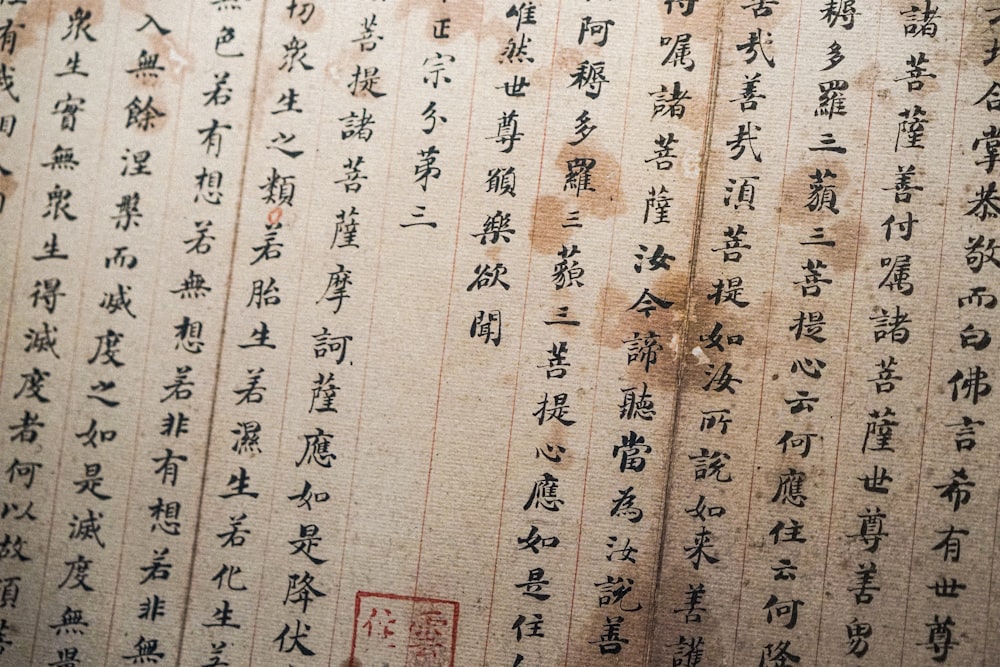 地合掌恭敬而白佛言希有世尊
諸菩薩善付囑諸菩薩世尊善男
耨多羅三藐三菩提心云何應住云何降
善哉善哉須菩提如汝所說如來善護
囑諸菩薩汝今諦聽當為汝說善
阿耨多羅三藐三菩提心應如是住
唯然世尊願樂欲聞
正宗分第三
菩提諸菩薩摩訶薩應如是降伏
切衆生之類若胎生若濕生若化生若
無色若有想若無想若非有想若非無
入無餘涅槃而滅度之如是滅度無量
衆生實無衆生得滅度者何以故須菩
有我相人
雲
住